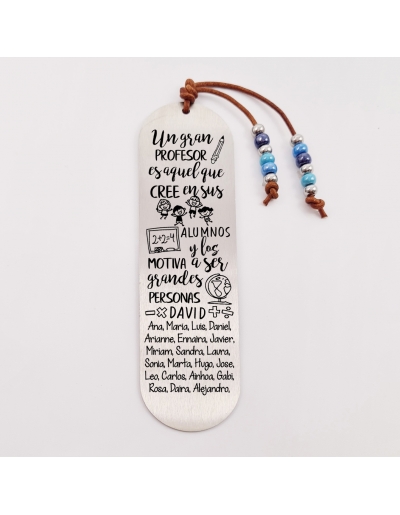 Un gran
PROFESOR
es aquel que
CREE en sus
ALUMNOS
2+2=4
y los
MOTIVA a ser
grandes
PERSONAS
−×DAVID+÷
Ana, Maria, Luis, Daniel,
Arianne, Ennaira, Javier,
Miriam, Sandra, Laura,
Sonia, Marta, Hugo, Jose,
Leo, Carlos, Ainhoa, Gabi,
Rosa, Daira, Alejandro,